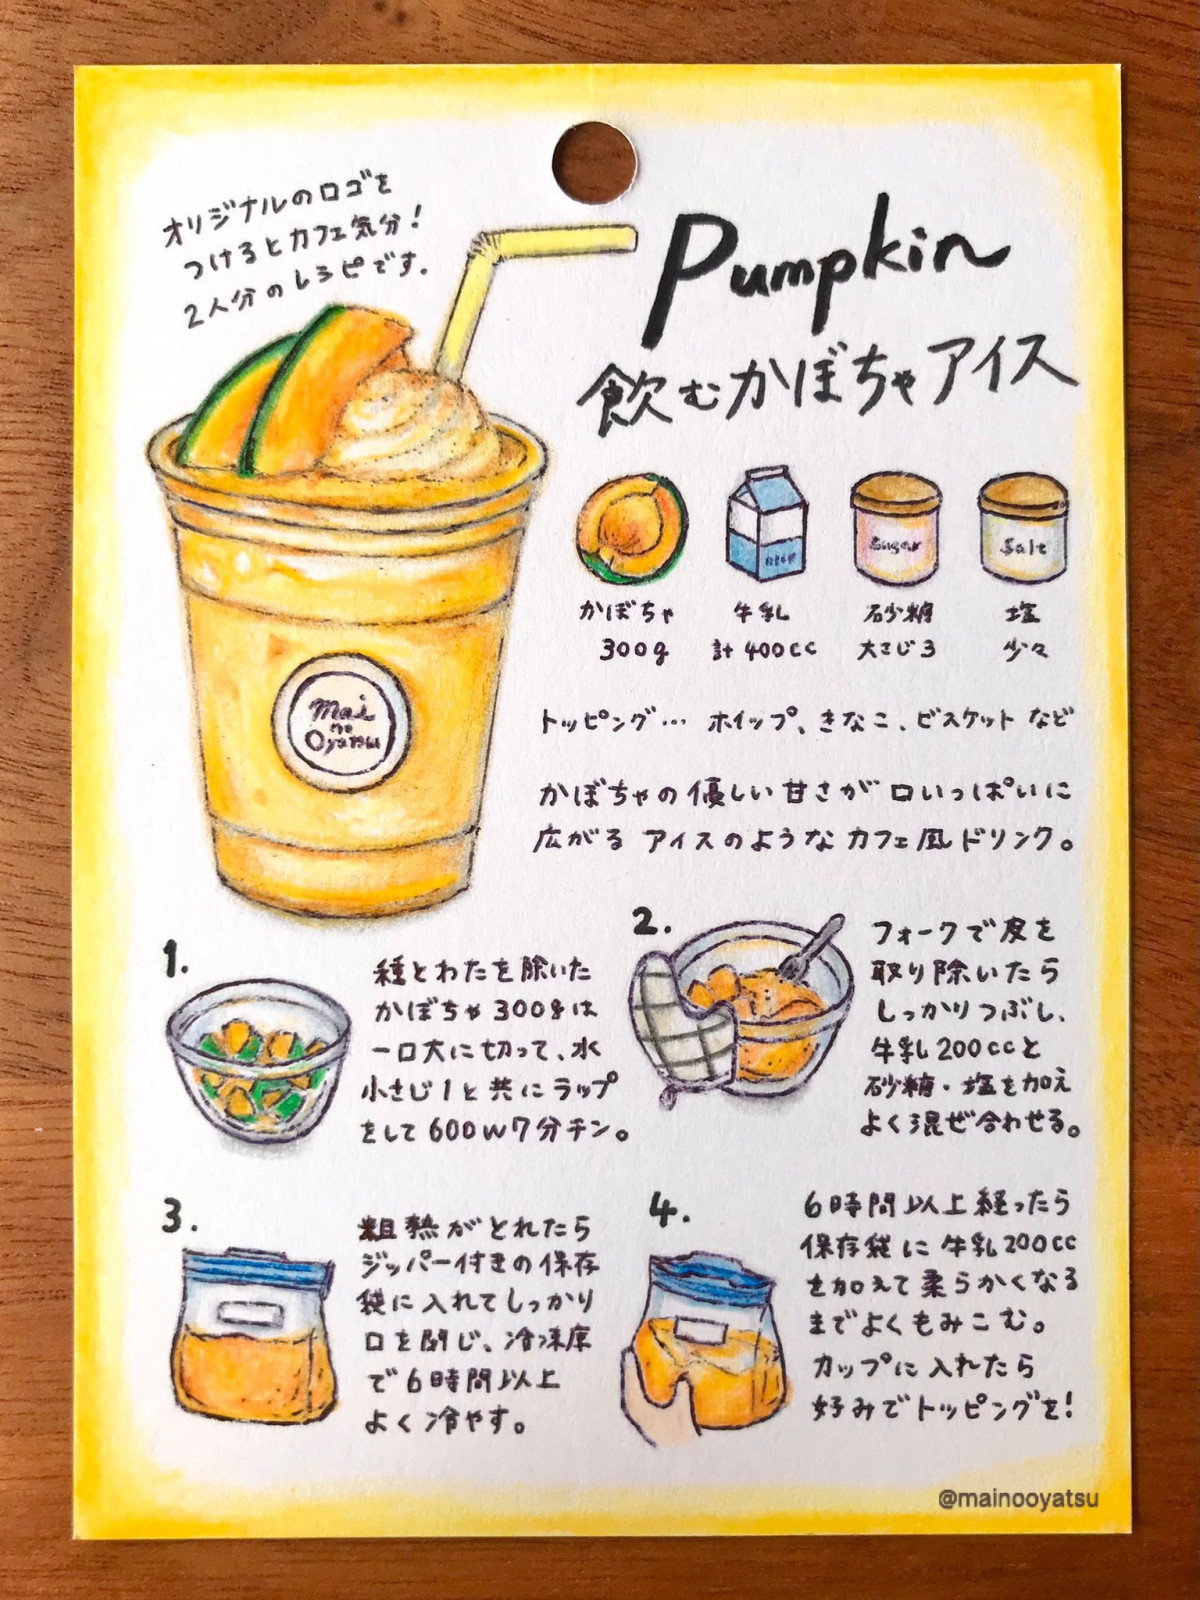 オリジナルのロゴを
つけるとカフェ気分！
2人分のレシピです.
Pumpkin
飲むかぼちゃアイス
Sugar
Salt
かぼちゃ
300g
牛乳
計400cc
砂糖
大さじ3
塩
少々
mai
no
Oyatsu
トッピング… ホイップ、きなこ、ビスケットなど
かぼちゃの優しい甘さが口いっぱいに
広がるアイスのようなカフェ風ドリンク。
1.
種とわたを除いた
かぼちゃ300gは
一口大に切って、水
小さじ1と共にラップ
をして600w7分チン。
2.
フォークで皮を
取り除いたら
しっかりつぶし、
牛乳200ccと
砂糖・塩を加え
よく混ぜ合わせる。
3.
粗熱がとれたら
ジッパー付きの保存
袋に入れてしっかり
口を閉じ、冷凍庫
で6時間以上
よく冷やす。
4.
6時間以上経ったら
保存袋に牛乳200cc
を加えて柔らかくなる
までよくもみこむ。
カップに入れたら
好みでトッピングを！
@mainooyatsu